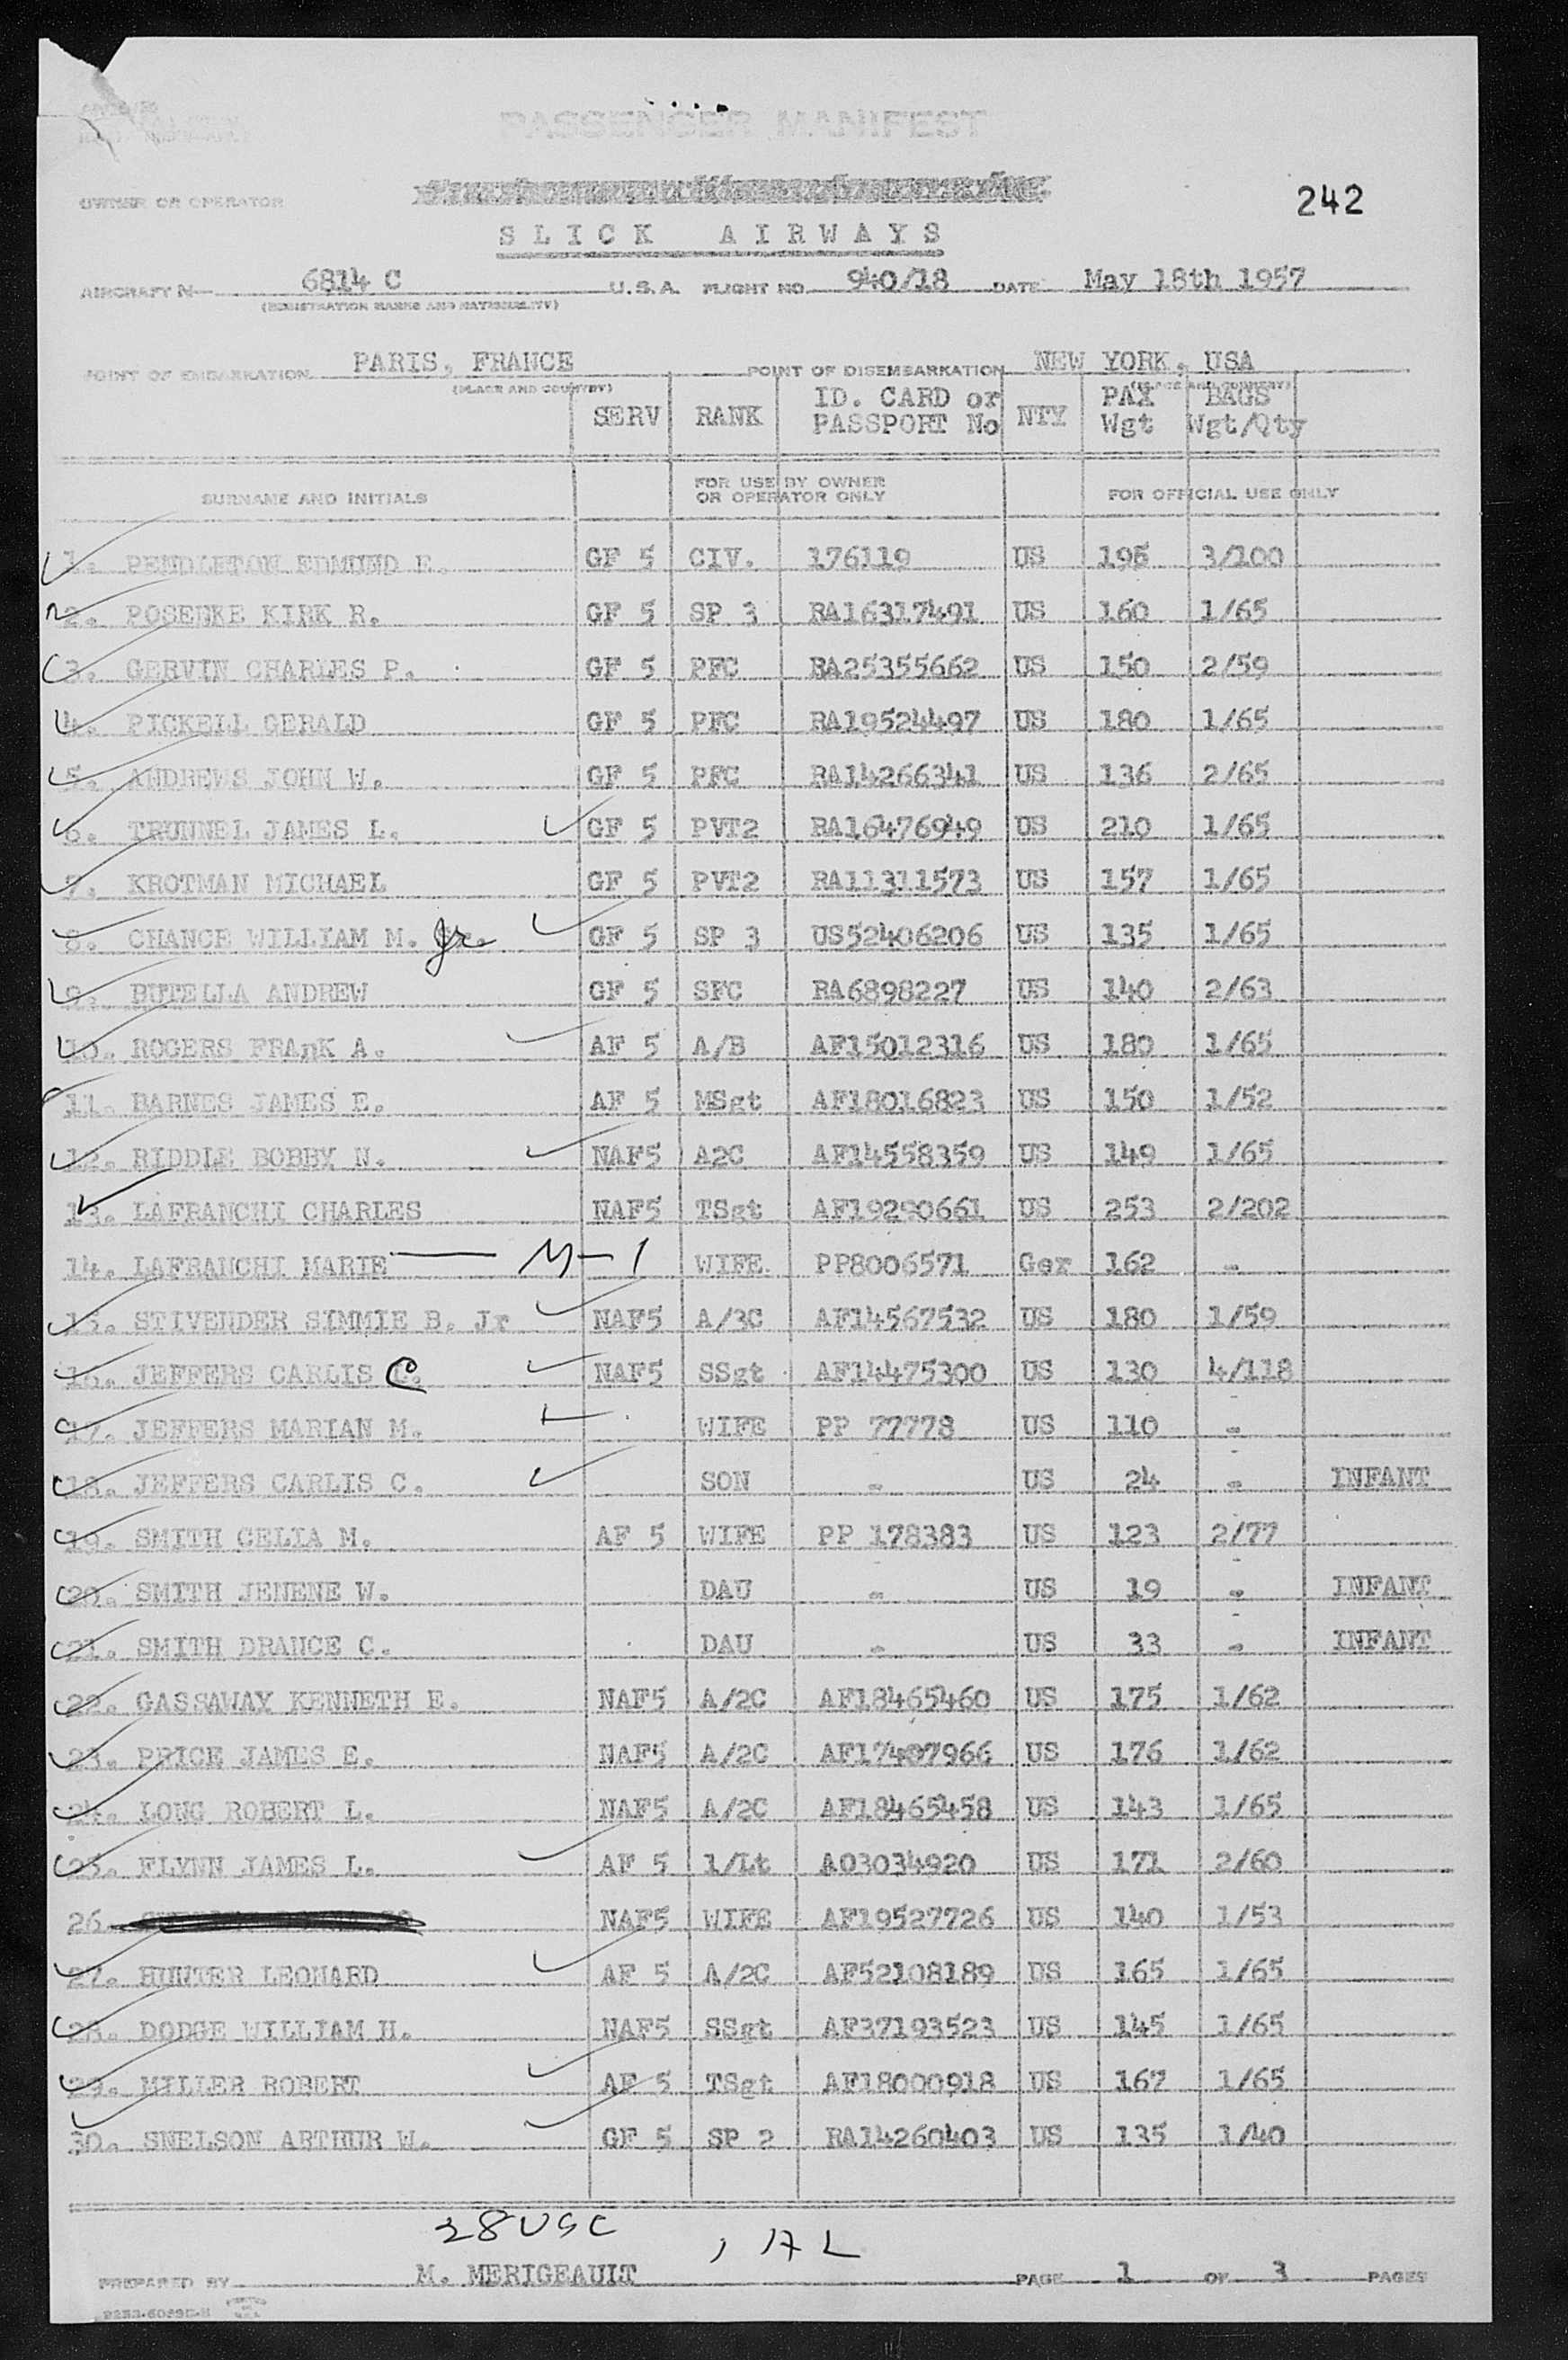 PASSENGER MANIFEST
242
OWNER OR OPERATOR
SLICK AIRWAYS
AIRCRAFT N 6814 C U.S.A. FLIGHT NO 940/18 DATE May 18th 1957
(REGISTRATION MARKS AND NATIONALITY)
POINT OF EMBARKATION PARIS, FRANCE POINT OF DISEMBARKATION NEW YORK, USA
(PLACE AND COUNTRY) (PLACE AND COUNTRY)
SERV RANK ID. CARD or PASSPORT No NTY PAX Wgt BAGS Wgt/Qty
SURNAME AND INITIALS FOR USE BY OWNER OR OPERATOR ONLY FOR OFFICIAL USE ONLY
1. PENDLETON EDMUND E. GF 5 CIV. 176119 US 195 3/100
2. POSENKE KIRK R. GF 5 SP 3 RA16317491 US 160 1/65
3. GERVIN CHARLES P. GF 5 PFC RA25355662 US 150 2/59
4. PICKELL GERALD GF 5 PFC RA19524497 US 180 1/65
5. ANDREWS JOHN W. GF 5 PFC RA14266341 US 136 2/65
6. TRUNNEL JAMES L. GF 5 PVT2 RA16476949 US 210 1/65
7. KROTMAN MICHAEL GF 5 PVT2 RA11311573 US 157 1/65
8. CHANCE WILLIAM M. Jr. GF 5 SP 3 US52406206 US 135 1/65
9. BUTELLA ANDREW GF 5 SFC RA6898227 US 140 2/63
10. ROGERS FRAnK A. AF 5 A/B AF15012316 US 180 1/65
11. BARNES JAMES E. AF 5 MSgt AF18016823 US 150 1/52
12. RIDDLE BOBBY N. NAF5 A2C AF14558359 US 149 1/65
13. LAFRANCHI CHARLES NAF5 TSgt AF19290661 US 253 2/202
14. LAFRANCHI MARIE M-1 WIFE PP8006571 Ger 162 -
15. STIVENDER SIMMIE B. Jr NAF5 A/3C AF14567532 US 180 1/59
16. JEFFERS CARLIS C NAF5 SSgt AF14475300 US 130 4/118
17. JEFFERS MARIAN M. WIFE PP 77778 US 110 -
18. JEFFERS CARLIS C. SON - US 24 - INFANT
19. SMITH CELIA M. AF 5 WIFE PP 178383 US 123 2/77
20. SMITH JENENE W. DAU - US 19 - INFANT
21. SMITH DRANCE C. DAU - US 33 - INFANT
22. GASSAWAY KENNETH E. NAF5 A/2C AF18465460 US 175 1/62
23. PRICE JAMES E. NAF5 A/2C AF17407966 US 176 1/62
24. LONG ROBERT L. NAF5 A/2C AF18465458 US 143 1/65
25. FLYNN JAMES L. AF 5 1/Lt AO3034920 US 171 2/60
26. NAF5 WIFE AF19527726 US 140 1/53
27. HUNTER LEONARD AF 5 A/2C AF52108189 US 165 1/65
28. DODGE WILLIAM H. NAF5 SSgt AF37193523 US 145 1/65
29. MILLER ROBERT AF 5 TSgt AF18000918 US 167 1/65
30. SNELSON ARTHUR W. GF 5 SP 2 RA14260403 US 135 1/40
28 USC
1 AL
PREPARED BY M. MERIGEAULT PAGE 1 OF 3 PAGES